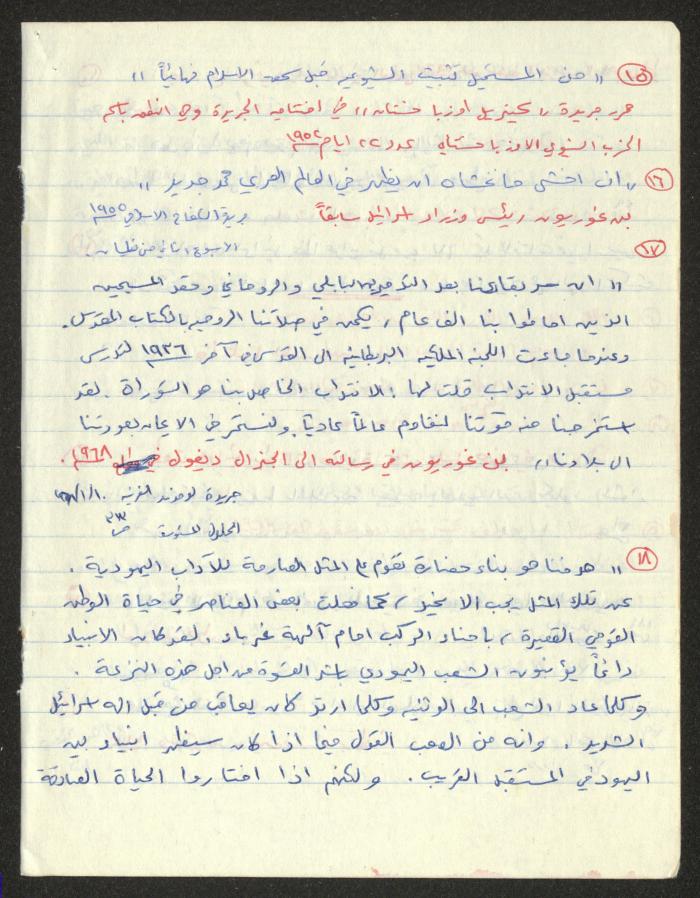 ١٥ " من المستحيل تثبيت الشيوعية قبل سحق الاسلام نهائياً "
محرر جريدة " كيزيل اوزباخستان " في افتتاحية الجريدة وهي الناطقة باسم
الحزب الشيوعي الاوزباخستاني عدد ٢٢ ايار ١٩٥٢
١٦ " ان اخشى ما نخشاه ان يظهر في العالم العربي محمد جديد "
بن غوريون رئيس وزراء اسرائيل سابقاً جريدة الكفاح الاسلامي ١٩٥٥
الاسبوع الثاني من نيسان
١٧
" ان سر بقائنا بعد التدميرين البابلي والروماني وحقد المسيحيين
الذين احاطوا بنا الف عام ، يكمن في صلاتنا الروحية بالكتاب المقدس .
وعندما جاءت اللجنة الملكية البريطانية الى القدس في آخر ١٩٣٦ لتدرس
مستقبل الانتداب قلت لها : الانتداب الخاص بنا هو التوراة . لقد
استخرجنا منه قوتنا لنقاوم عالماً عادياً ولنستمر في الايمان بعودتنا
الى بلادنا " بن غوريون في رسالته الى الجنرال ديغول في ١٩٦٨ .
جريدة لوموند الفرنسية ١٠/١/
ص ٢٣
١٨ " هدفنا هو بناء حضارة تقوم على المثل الصارمة للآداب اليهودية .
عن تلك المثل يجب الا نحيد ، كما فعلت بعض العناصر في حياة الوطن
القومي القصيرة ، باحناء الركب امام آلهة غرباء . لقد كان الانبياء
دائماً يؤنبون الشعب اليهودي باشد القسوة من اجل هذه النزعة .
وكلما عاد الشعب الى الوثنية وكلما ارتد كان يعاقب من قبل اله اسرائيل
الشديد . وانه من الصعب القول فيما اذا كان سيظهر انبياء بين
اليهود في المستقبل القريب . ولكنهم اذا اختاروا الحياة الصادقة